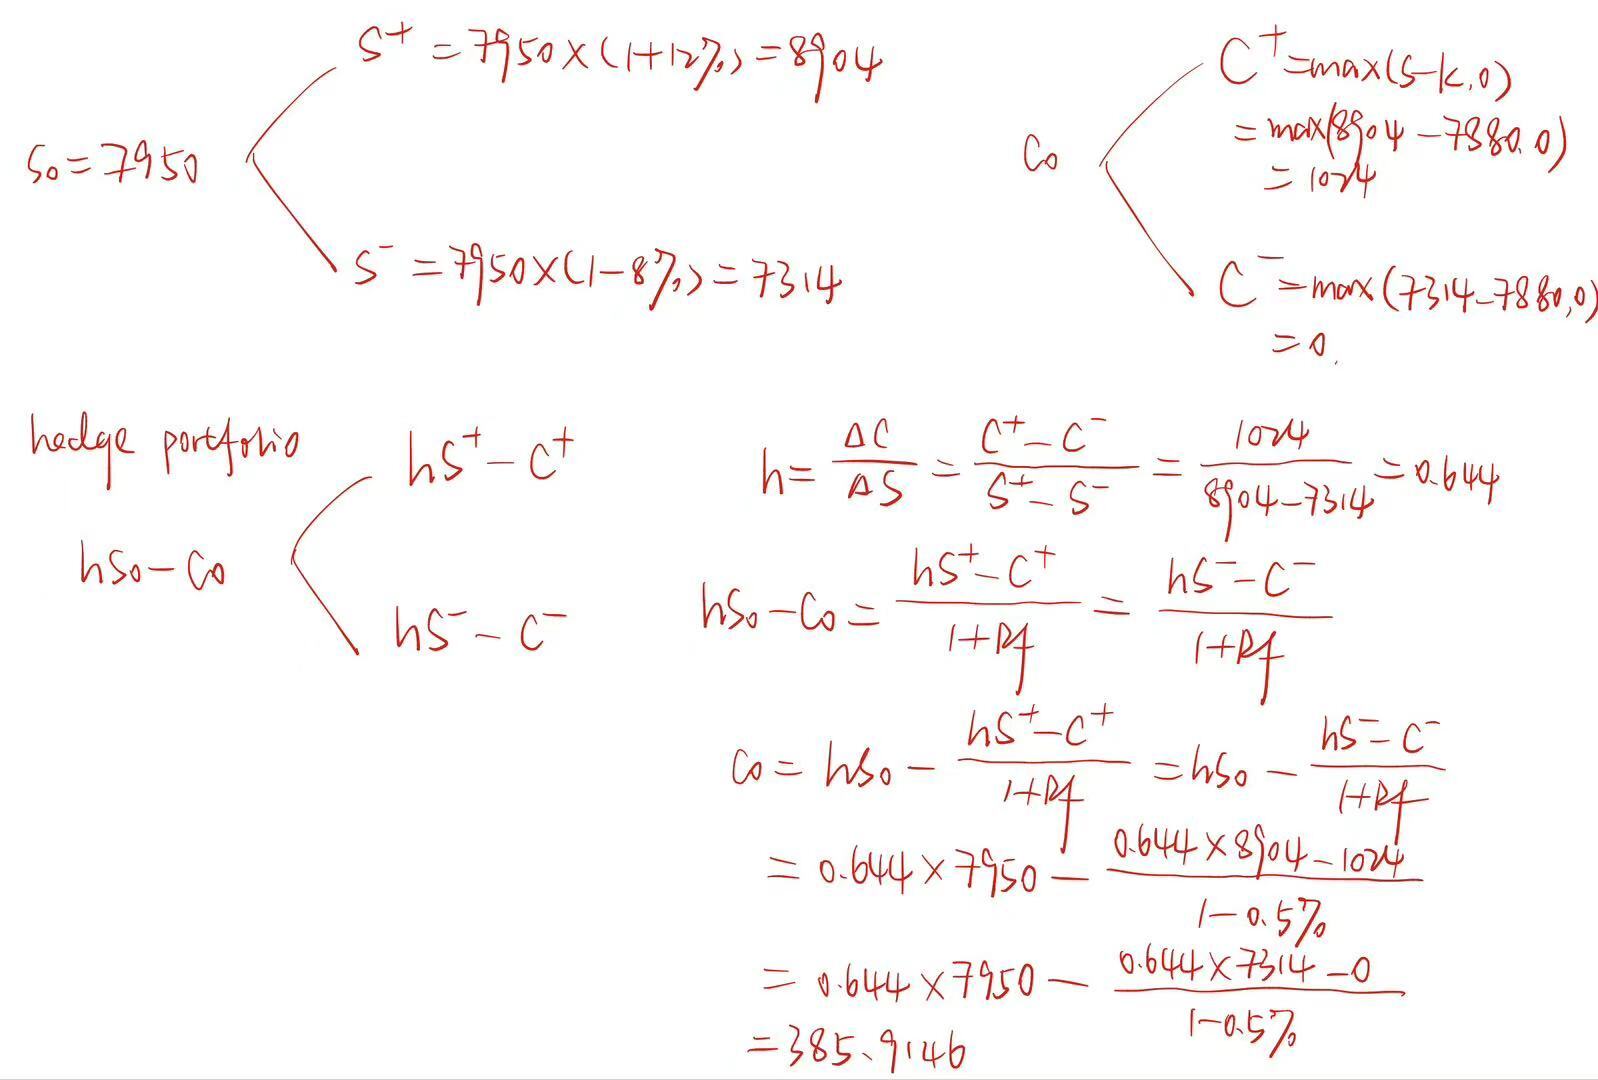 S⁺ = 7950×(1+12%) = 8904
S₀ = 7950
S⁻ = 7950×(1-8%) = 7314
C⁺ = max(S-K,0)
= max(8904-7880,0)
= 1024
C₀
C⁻ = max(7314-7880,0)
= 0.
hedge portfolio
hS⁺ - C⁺
hS₀ - C₀
hS⁻ - C⁻
h = ΔC/ΔS = (C⁺ - C⁻)/(S⁺ - S⁻) = 1024/(8904-7314) = 0.644
hS₀ - C₀ = (hS⁺ - C⁺)/(1+Rf) = (hS⁻ - C⁻)/(1+Rf)
C₀ = hS₀ - (hS⁺ - C⁺)/(1+Rf) = hS₀ - (hS⁻ - C⁻)/(1+Rf)
= 0.644×7950 - (0.644×8904-1024)/(1-0.5%)
= 0.644×7950 - (0.644×7314-0)/(1-0.5%)
= 385.9146